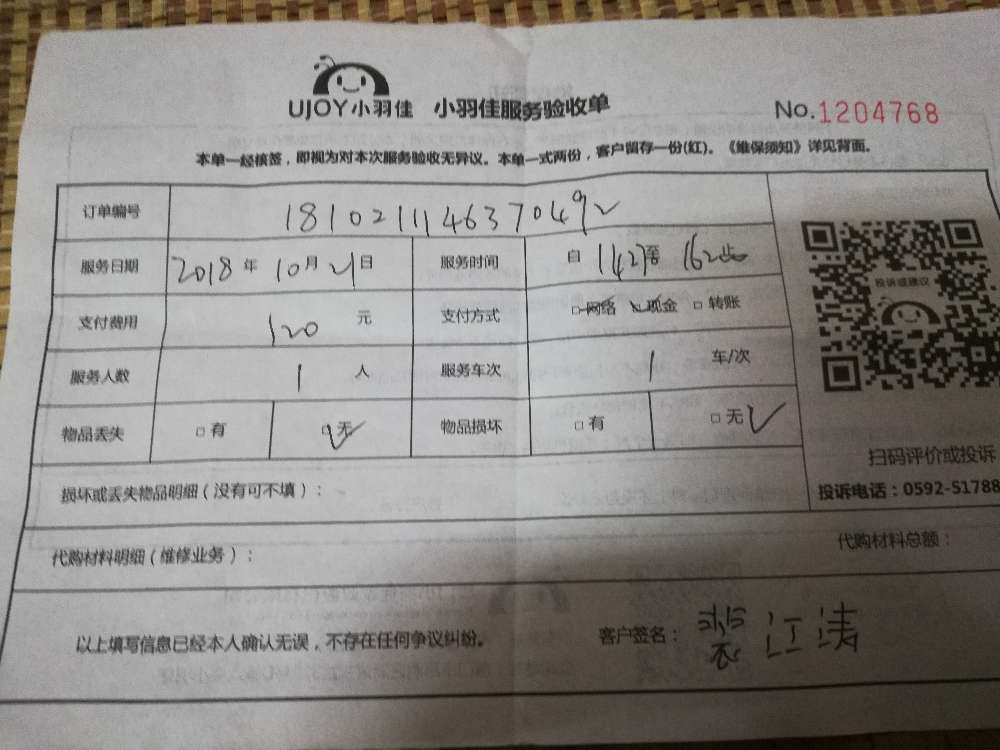 UJOY小羽佳 小羽佳服务验收单 No.1204768
本单一经核签，即视为对本次服务验收无异议。本单一式两份，客户留存一份(红)。《维保须知》详见背面。
订单编号 181021114637049
服务日期 2018年10月21日 服务时间 自1427至162止
支付费用 120元 支付方式 □网络 □现金 □转账
服务人数 1人 服务车次 1车/次
物品丢失 □有 □无 物品损坏 □有 □无
投诉或建议
扫码评价或投诉
投诉电话：0592-51788
损坏或丢失物品明细（没有可不填）：
代购材料明细（维修业务）： 代购材料总额：
以上填写信息已经本人确认无误，不存在任何争议纠纷。 客户签名：裴江涛